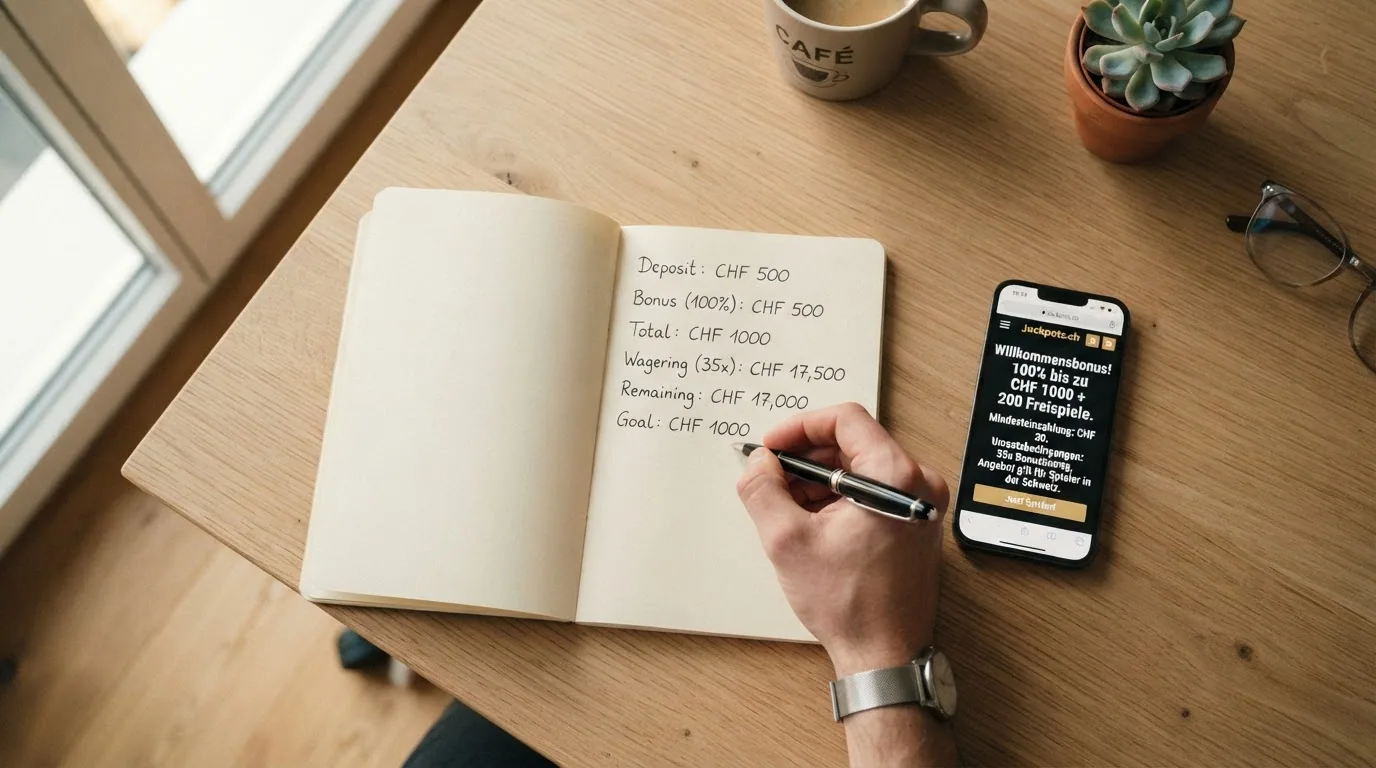 CAFÉ
Deposit: CHF 500
Bonus (100%): CHF 500
Total: CHF 1000
Wagering (35x): CHF 17,500
Remaining: CHF 17,000
Goal: CHF 1000
Jackpots.ch
Willkommensbonus!
100% bis zu
CHF 1000 +
200 Freispiele.
Mindesteinzahlung: CHF
20.
Angebot gilt für Spieler in
der Schweiz.